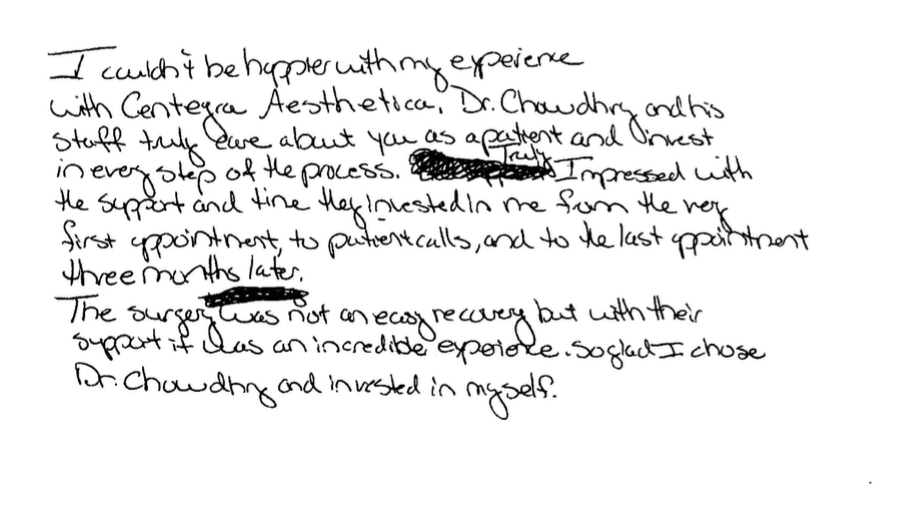 I couldn't be happier with my experience
with Centegra Aesthetica. Dr. Chowdhry and his
staff truly care about you as a patient and invest
in every step of the process. Truly Impressed with
the support and time they invested in me from the very
first appointment, to patient calls, and to the last appointment
three months later.
The surgery was not an easy recovery but with their
support it was an incredible experience. So glad I chose
Dr. Chowdhry and invested in myself.